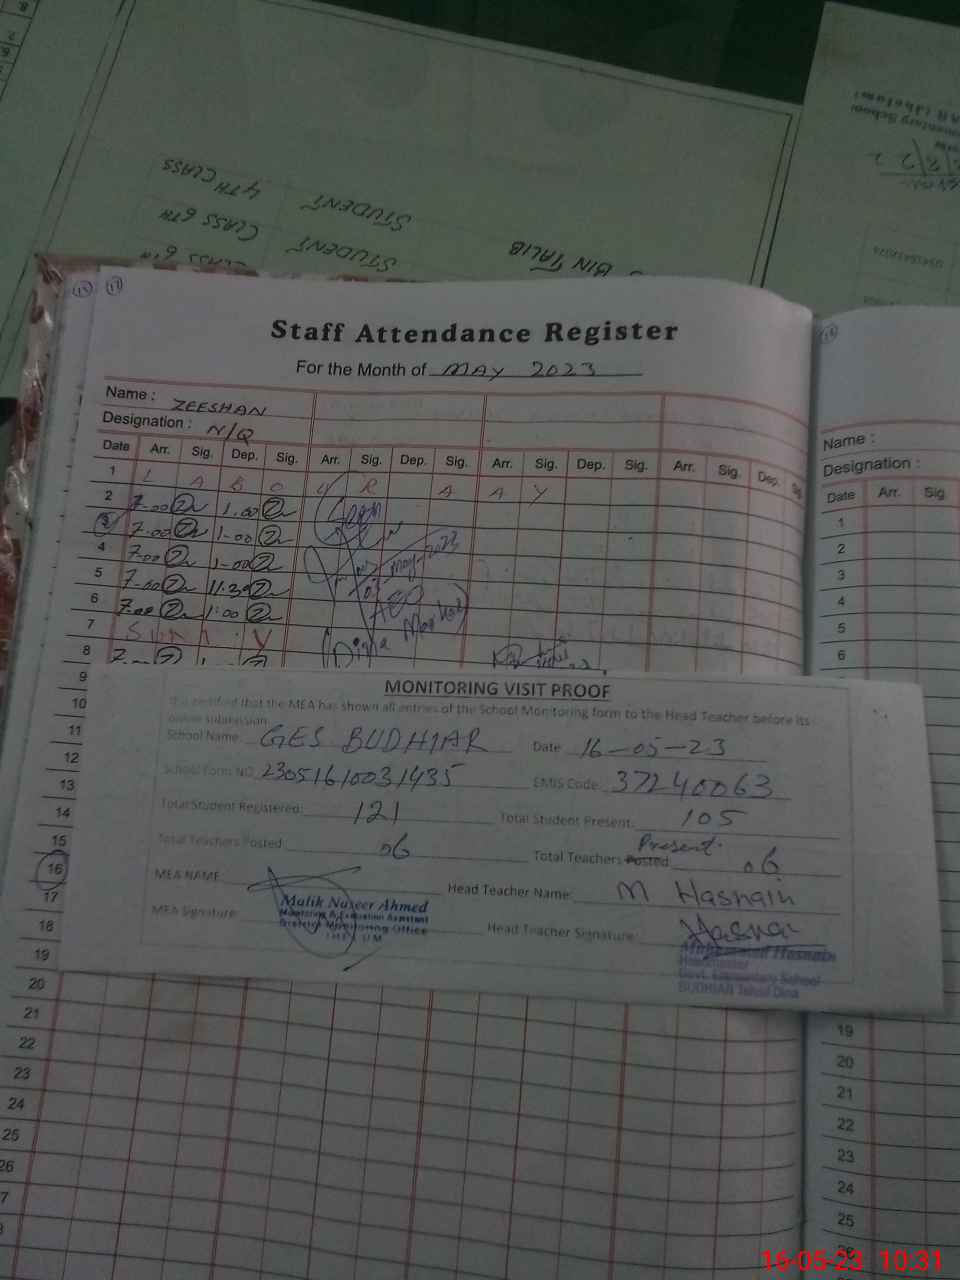 4TH CLASS STUDENT
CLASS 6TH STUDENT BIN TALIB
Staff Attendance Register
For the Month of MAY 2023
Name : ZEESHAN
Designation : N/Q
Date Arr. Sig. Dep. Sig. Arr. Sig. Dep. Sig. Arr. Sig. Dep. Sig. Arr. Sig. Dep. Sig.
1 L A B O U R A A Y
2 7-00 1.00
3 7.00 1-00
4 7-00 1-00
5 7-00 11.30
6 7.00 1:00
7 SUN Y
8
9
10
11
12
13
14
15
16
17
18
19
20
21
22
23
24
25
26
7
Name :
Designation :
Date Arr. Sig.
1
2
3
4
5
6
19
20
21
22
23
24
25
MONITORING VISIT PROOF
It is certified that the MEA has shown all entries of the School Monitoring form to the Head Teacher before its
online submission
School Name: GES BUDHIAR Date 16-05-23
School Form NO 23051610031435 EMIS Code: 37240063
Total Student Registered: 121 Total Student Present: 105
Total Teachers Posted 06 Total Teachers Posted Present 06
MEA NAME Head Teacher Name: M Hasnain
Malik Naseer Ahmed
Monitoring & Evaluation Assistant
District Monitoring Office
MEA Signature Head Teacher Signature: Hasnai
Muhammad Hasnain
Headmaster
Govt. Elementary School
BUDHIAR Tehsil Dina
16-05-23 10:31